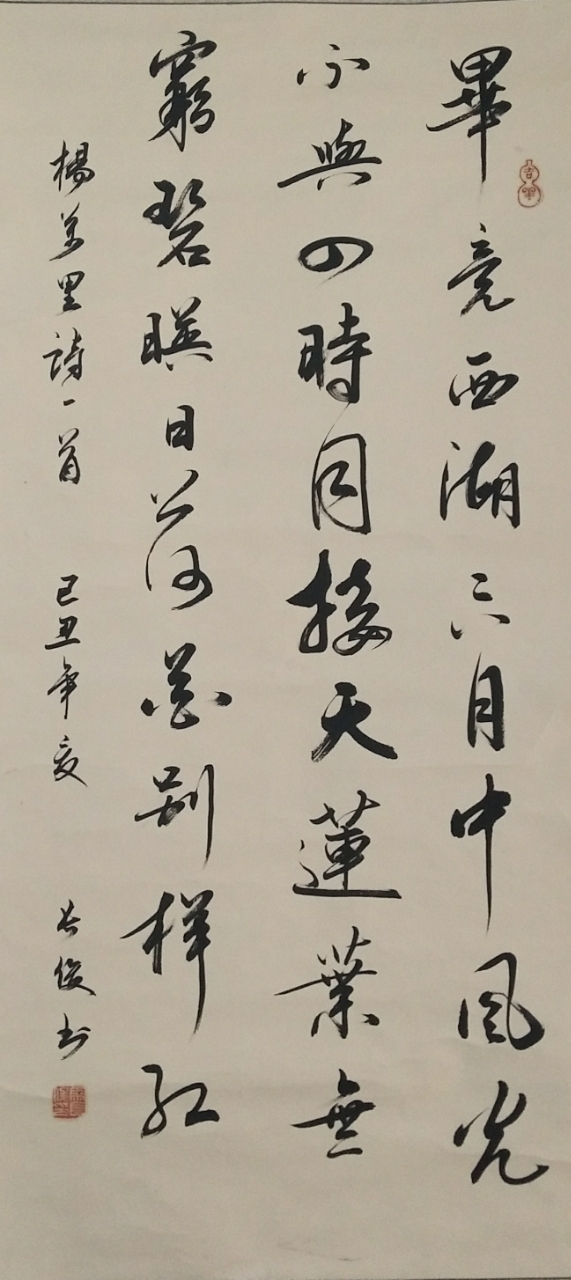 畢竟西湖六月中風光
不與四時同接天蓮葉無
窮碧暎日荷花别样红
楊萬里詩一首 己丑年夏 俊书